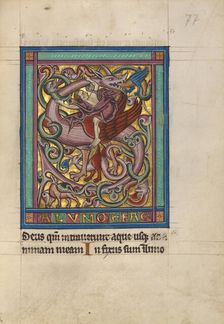 77
SALVUM ME FAC
Deus qm̄ intrauerunt aque usq; ad a
nimam meam Infixus sum ī limo